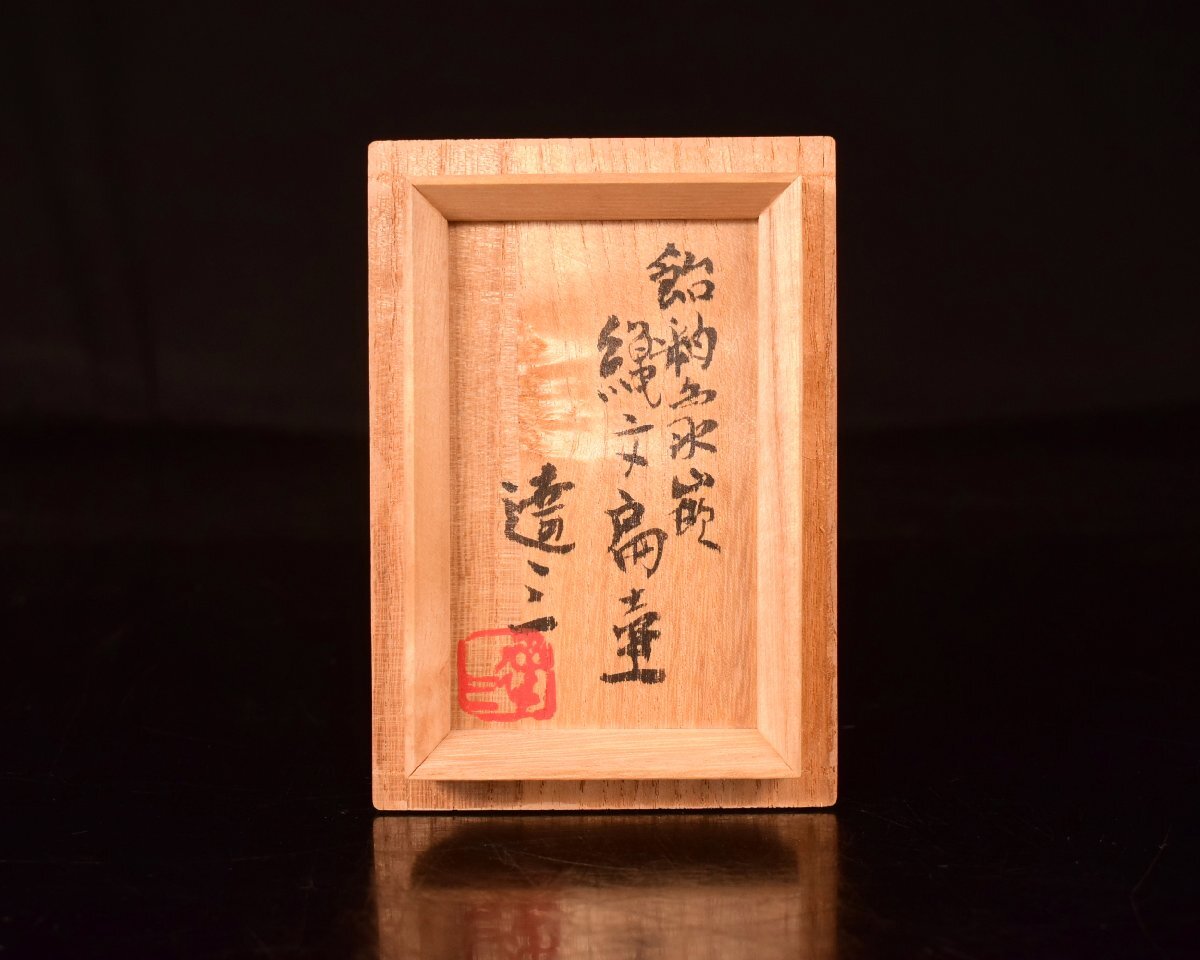 飴釉象嵌
縄文扁壷
達三